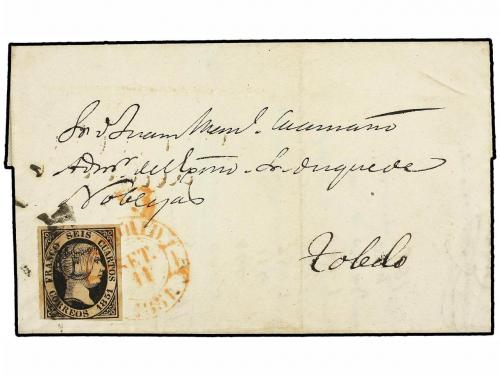 Sr. D. Juan Man.l Caamaño
Admor. del Exmo. Sr. Duque de
Noblejas
Toledo
FRANCO SEIS CUARTOS
CORREOS 1851